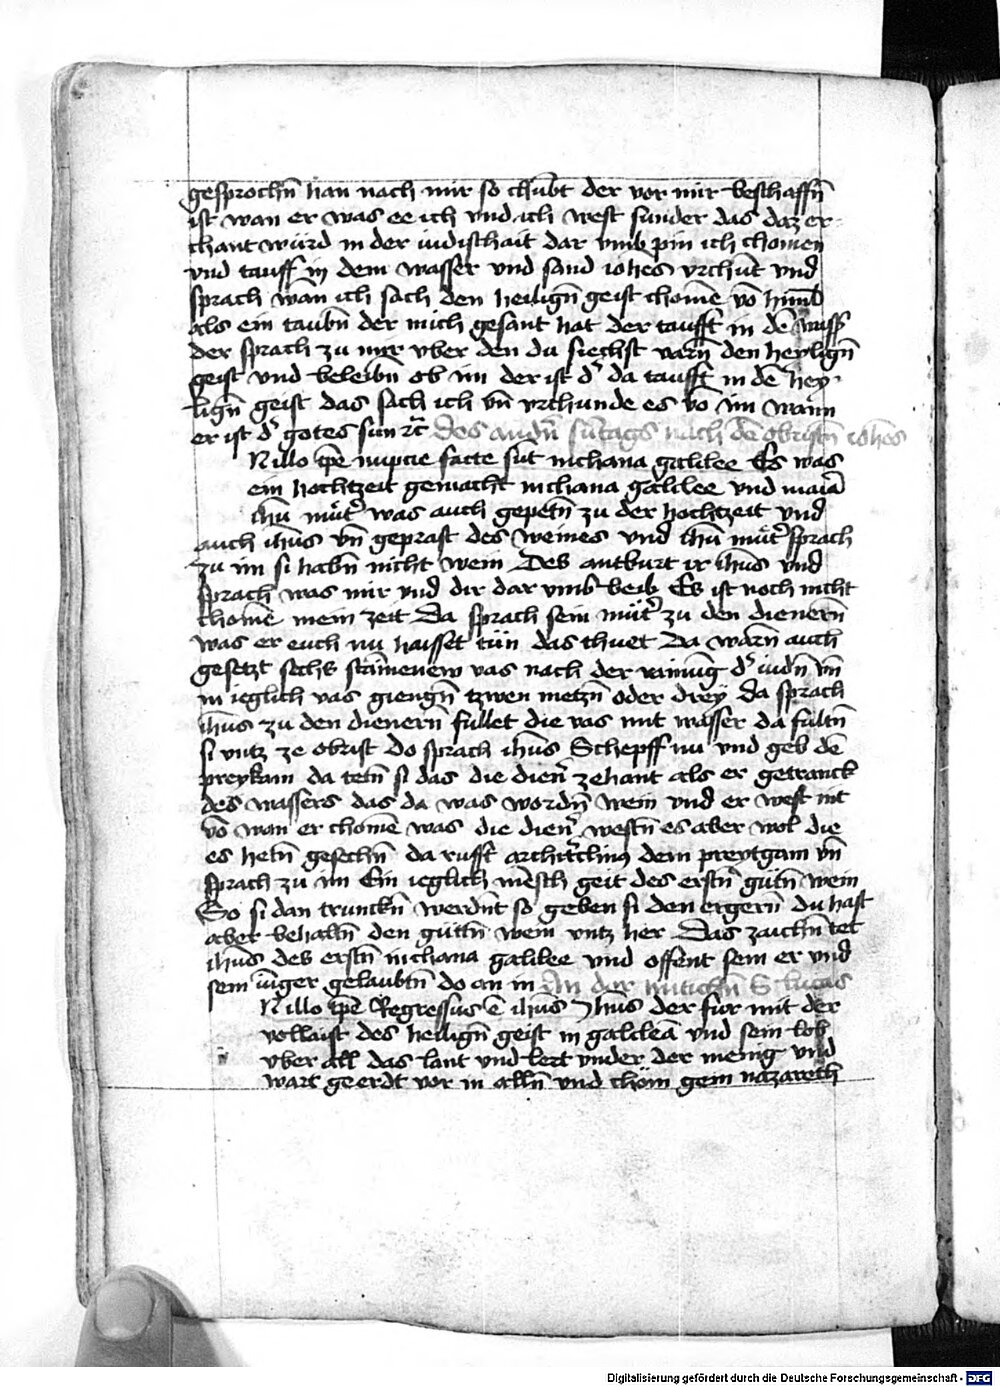 gesprochn̄ han nach mir so chūbt der vor mir beschaffn̄
ist wan er was ee ich vnd ich west sunder das daz er
chant würd in der iudischait dar vmb pin ich chomen
vnd tauff in dem wasser vnd sand iohēs vrchūt vnd
sprach wān ich sach den heilign̄ geist chomē vō himl
als ein taubn̄ der mich gesant hat der taufft in dē wass
der sprach zu mir vber den du siechst varn̄ den heylign̄
geist vnd beleibn̄ ob im der ist d' da taufft in dē hey
lign̄ geist das sach ich vn̄ vrchunde es vō im wann
er ist d' gotes sun rc̄ Des andn̄ sūtags nach dē obristn̄ iohēs
N illo tpē nupcie facte sūt in chana galilee Es was
ein hochtzeit gemacht in chana galilee vnd maīa
ihū müt' was auch gepetn̄ zu der hochtzeit vnd
auch ihūs vn̄ geprast des weines vnd ihū müt' sprach
zu im si habn̄ nicht wein Des antburt ir ihūs vnd
sprach was mir vnd dir dar vmb beib Es ist noch nicht
chomē mein zeit Da sprach sein müt' zu den dienern̄
was er euch nu haisset tün das thuet Da warn̄ auch
gesetzt sechs stāinenew vas nach der rainūg d' iudn̄ vn̄
in ieglich vas giengn̄ tzwen metzn̄ oder dreÿ da sprach
ihūs zu den dienern̄ füllet die vas mit wasser da fültn̄
si vntz ze obrist do sprach ihūs Schepff nu vnd geb dē
preykam da tetn̄ si das die dien' zehant als er getranck
des wassers das da was wordn̄ wein vnd er west nit
vō wan er chomē was die dien' westn̄ es aber wol die
es hetn̄ gesechn̄ da rufft archit'clin9 dem preytgam vn̄
sprach zu im Ein ieglich mēsch geit des erstn̄ gütn̄ wein
So si dan trunckn̄ werdn̄t so geben si den ergern̄ du hast
aber behaltn̄ den gütn̄ wein vntz her Das zaichn̄ tet
ihūs des erstn̄ in chana galilee vnd offent sein er vnd
sein iūger gelaubtn̄ do an in An der mitichn̄ S lucas
N illo tpē Regressus ē ihūs Ihūs der für mit der
vollaist des heilign̄ geist in galileā vnd sein lob
vber all das lant vnd lert vnder der menig vnd
wart geerdt vor in alln̄ vnd chöm gein nazareth
Digitalisierung gefördert durch die Deutsche Forschungsgemeinschaft - DFG